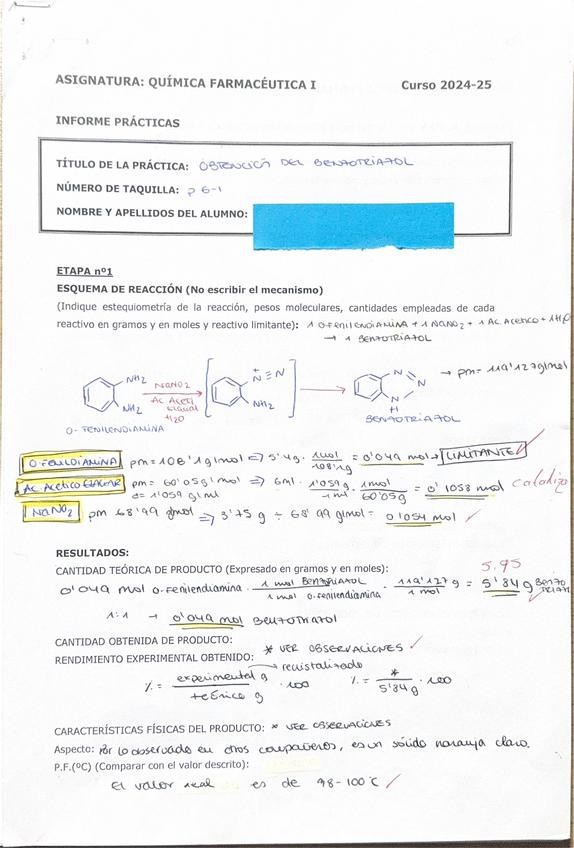 ASIGNATURA: QUÍMICA FARMACÉUTICA I Curso 2024-25
INFORME PRÁCTICAS
TÍTULO DE LA PRÁCTICA: OBTENCIÓN DEL BENZOTRIAZOL
NÚMERO DE TAQUILLA: P 6-1
NOMBRE Y APELLIDOS DEL ALUMNO:
ETAPA nº1
ESQUEMA DE REACCIÓN (No escribir el mecanismo)
(Indique estequiometría de la reacción, pesos moleculares, cantidades empleadas de cada
reactivo en gramos y en moles y reactivo limitante): 1 O-FENILENDIAMINA + 1 NaNO2 + 1 AC. ACETICO + 1H2O
→ 1 BENZOTRIAZOL
NH2
NH2
O-FENILENDIAMINA
NaNO2
AC ACETI
glacial
H2O
+
N ≡ N
NH2
N
N
N
H
BENZOTRIAZOL
→ pm = 119'127g/mol
O-FENILDIAMINA pm = 108'1g/mol ⇒ 5'4g · 1mol / 108'1g = 0'049 mol → LIMITANTE
AC. ACETICO GLACIAR pm = 60'05g/mol ⇒ 6ml · 1'059g / 1 ml · 1mol / 60'05g = 0'1058 mol
d = 1'059 g/ml
NaNO2 pm 68'99 g/mol ⇒ 3'75 g ÷ 68'99 g/mol = 0'054 mol
RESULTADOS:
CANTIDAD TEÓRICA DE PRODUCTO (Expresado en gramos y en moles): 5.95
0'049 mol o-fenilendiamina · 1 mol BENZOTRIAZOL / 1 mol o-fenilendiamina · 119'127 g / 1 mol = 5'84 g BENZO TRIAZOL
1:1 → 0'049 mol BENZOTRIAZOL
CANTIDAD OBTENIDA DE PRODUCTO:
* VER OBSERVACIONES
RENDIMIENTO EXPERIMENTAL OBTENIDO:
→ recristalizado
% = experimental g / teórico g · 100 % = * / 5'84 g · 100
CARACTERÍSTICAS FÍSICAS DEL PRODUCTO: * VER OBSERVACIONES
Aspecto: Por lo observado en otros compañeros, es un sólido naranja claro.
P.F.(ºC) (Comparar con el valor descrito):
El valor real es de 98-100ºC